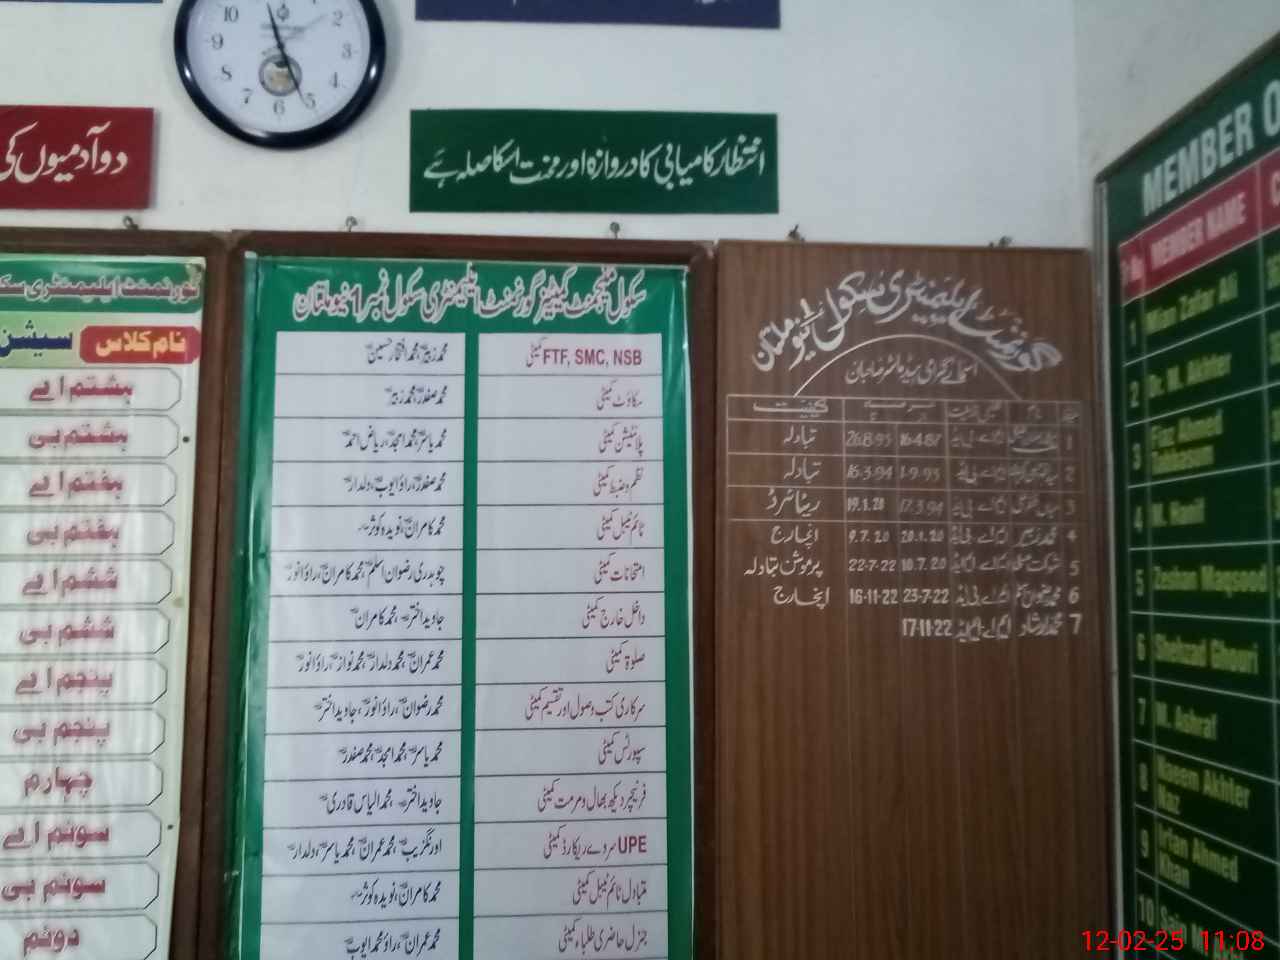 10
2
9
3
8
7
6
5
دو آدمیوں کی
انتظار کامیابی کا دروازہ اور محنت اسکا صلہ ہے
گورنمنٹ ایلیمنٹری سکو
نام کلاس سیشن
ہشتم اے
ہشتم بی
ہفتم اے
ہفتم بی
ششم اے
ششم بی
پنجم اے
پنجم بی
چہارم
سوئم اے
سوئم بی
دوئم
سکول مینجمنٹ کمیٹیز گورنمنٹ ایلیمنٹری سکول نمبر 1 نیو ملتان
FTF, SMC, NSB کمیٹی محمد زبیر، محمد افتخار حسین
سکاؤٹ کمیٹی محمد صفدر، محمد زبیر
پلانٹیشن کمیٹی محمد یاسر، محمد امجد، ریاض احمد
نظم و ضبط کمیٹی محمد صفدر، راؤ ایوب، دلدار
ٹائم ٹیبل کمیٹی محمد کامران، نویدہ کوثر
امتحانات کمیٹی چوہدری رضوان اسلم، محمد کامران، راؤ انور
داخل خارج کمیٹی جاوید اختر، محمد کامران
صلوۃ کمیٹی محمد عمران، محمد دلدار، محمد نواز، راؤ انور
سرکاری کتب وصول اور تقسیم کمیٹی محمد رضوان، راؤ انور، جاوید اختر
سپورٹس کمیٹی محمد یاسر، محمد امجد، محمد صفدر
فرنیچر دیکھ بھال و مرمت کمیٹی جاوید اختر، محمد الیاس قادری
UPE سروے ریکارڈ کمیٹی اورنگزیب، محمد عمران، محمد یاسر، دلدار
متبادل ٹائم ٹیبل کمیٹی محمد کامران، نویدہ کوثر
جنرل حاضری طلباء کمیٹی محمد عمران، راؤ محمد ایوب
گورنمنٹ ایلیمنٹری سکول نیو ملتان
اسمائے گرامی ہیڈ ماسٹر صاحبان
نام کیفیت
16.4.87 26.8.93 تبادلہ
2 1.9.93 16.3.94 تبادلہ
3 17.3.94 19.1.20 ریٹائرڈ
4 محمد زبیر ایم اے بی ایڈ 20.1.20 9.7.20 انچارج
5 شوکت علی 10.7.20 22-7-22 پرموشن تبادلہ
6 محمد رضوان اسلم ایم اے بی ایڈ 23-7-22 16-11-22 انچارج
7 محمد ارشاد ایم اے ایم ایڈ 17-11-22
MEMBER O
MEMBER NAME
1 Mian Zafar Ali
2 Dr. M. Akhter
3 Fiaz Ahmed
4 M.
5 Zeshan Maqsood
6 Shahzad Ghouri
7 M. Ashraf
8 Naeem Akhter Naz
9 Irfan Ahmed Khan
10
12-02-25 11:08